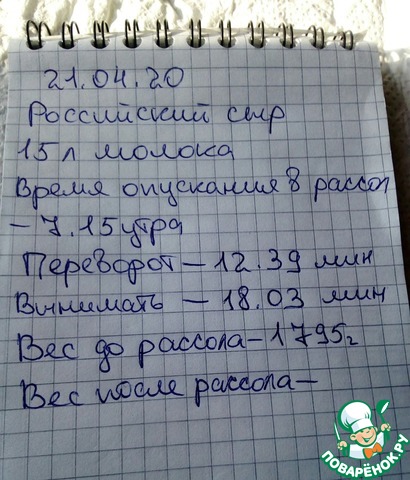 21.04.20
Российский сыр
15 л молока
Время опускания в рассол
- 7.15 утра
Переворот - 12.39 мин
Вынимать - 18.03 мин
Вес до рассола - 1795г
Вес после рассола -
ПОВАРЁНОК.РУ